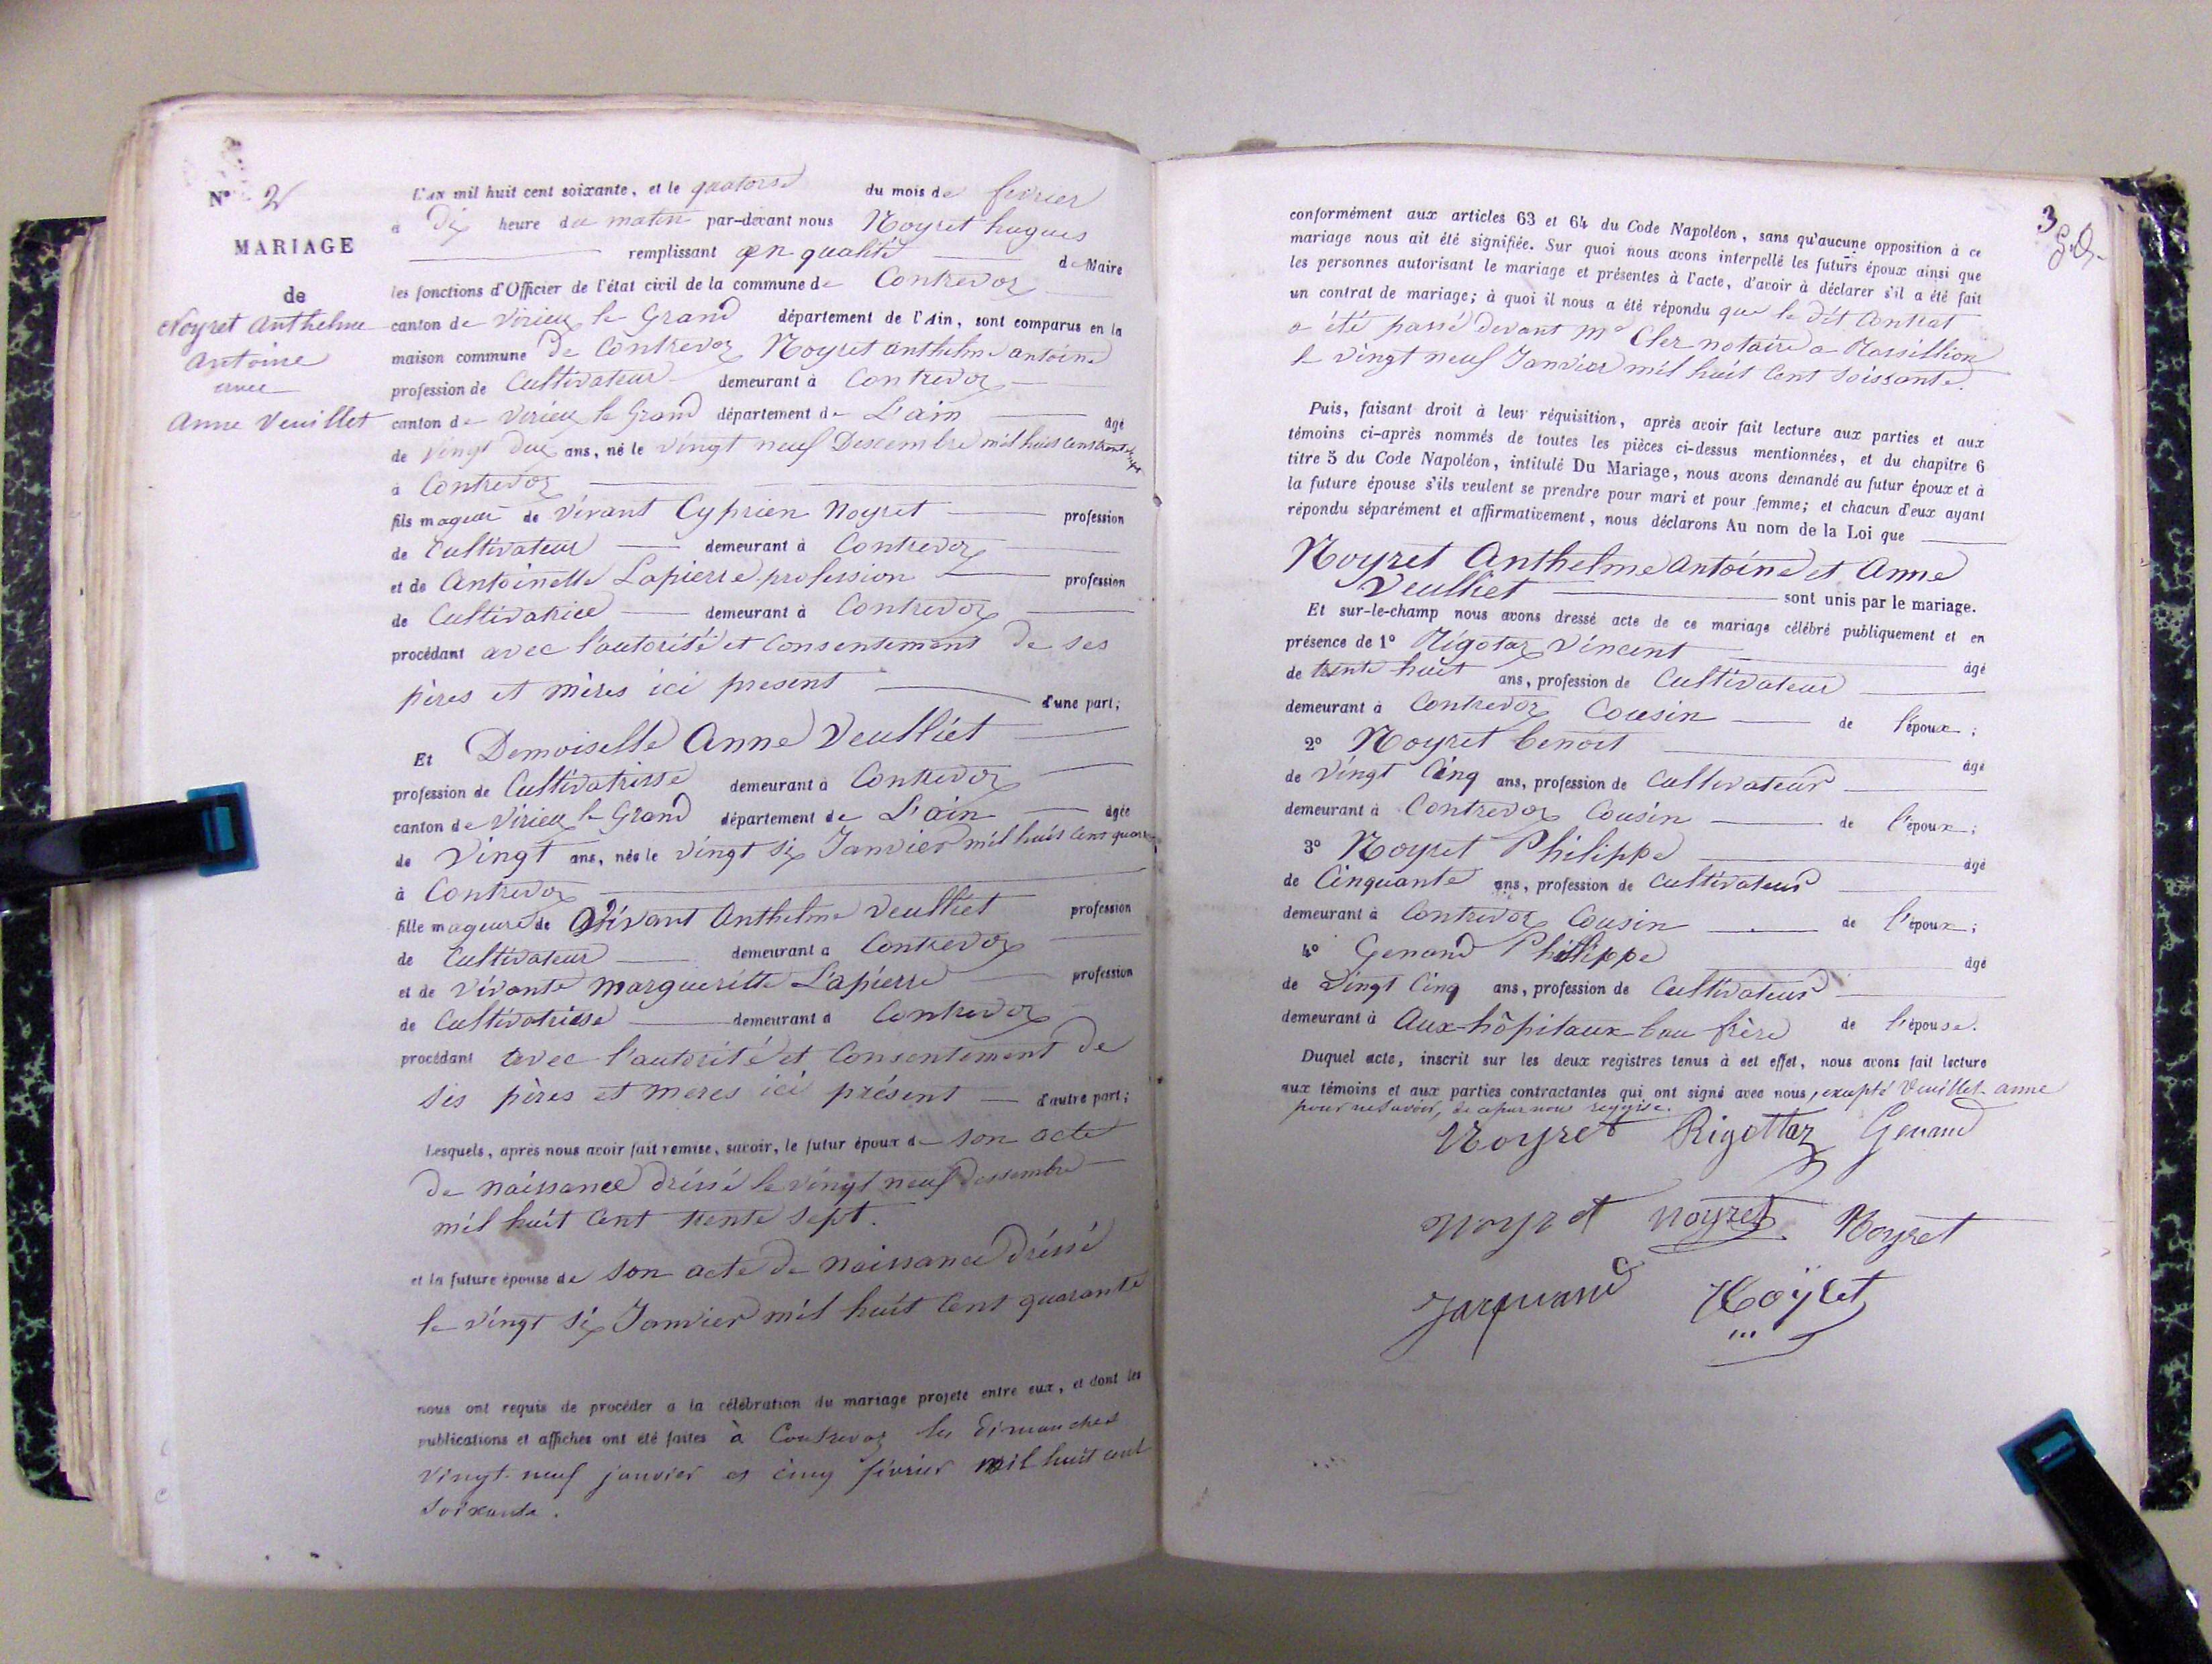 N° 2
MARIAGE
de
Noyret Anthelme
Antoine
avec
Anne Veuillet
L'an mil huit cent soixante, et le quatorse du mois de fevrier
à Dix heure du matin par-devant nous Noyret hugues
remplissant en qualité de Maire
les fonctions d'Officier de l'état civil de la commune de Contrevoz
canton de Virieux le Grand département de l'Ain, sont comparus en la
maison commune De Contrevoz Noyret anthelme antoine
profession de Cultivateur demeurant à Contrevoz
canton de Virieux le Grand département de L'ain âgé
de vingt deux ans, né le vingt neuf Descembre mil huit cent trente sept
à Contrevoz
fils mageur de vivant Cyprien Noyret profession
de Cultivateur demeurant à Contrevoz
et de Antoinette Lapierre profession profession
de Cultivatrice demeurant à Contrevoz
procédant avec l'autorité et Consentement De ses
pères et mères ici present d'une part;
Et Demoiselle Anne Veulliet
profession de Cultivatrisse demeurant à Contrevoz
canton de Virieux le Grand département de L'ain âgée
de Vingt ans, née le vingt six Janvier mil huit Cent quarante
à Contrevoz
fille mageure de Vivant Anthelme Veulliet profession
de Cultivateur demeurant à Contrevoz
et de vivante margueritte Lapierre profession
de Cultivatrisse demeurant à Contrevoz
procédant avec l'autorité et Consentement de
ses pères et meres ici présent d'autre part;
Lesquels, après nous avoir fait remise, savoir, le futur époux de son acte
De naissance dréssé le vingt neuf dessembre
mil huit Cent trente sept.
et la future épouse de son acte de naissance dréssé
le vingt six Janvier mil huit Cent quarante
nous ont requis de procéder à la célébration du mariage projeté entre eux, et dont les
publications et affiches ont été faites à Contrevoz les Dimanches
vingt-neuf janvier et cinq février mil huit cent
soixante.
3
conformément aux articles 63 et 64 du Code Napoléon, sans qu'aucune opposition à ce
mariage nous ait été signifiée. Sur quoi nous avons interpellé les futurs époux ainsi que
les personnes autorisant le mariage et présentes à l'acte, d'avoir à déclarer s'il a été fait
un contrat de mariage; à quoi il nous a été répondu que le dit Contrat
a été passé devant Me Cler notaire a Rossillion
le vingt neuf Janvier mil huit Cent Soissante.
Puis, faisant droit à leur réquisition, après avoir fait lecture aux parties et aux
témoins ci-après nommés de toutes les pièces ci-dessus mentionnées, et du chapitre 6
titre 5 du Code Napoléon, intitulé Du Mariage, nous avons demandé au futur époux et à
la future épouse s'ils veulent se prendre pour mari et pour femme; et chacun d'eux ayant
répondu séparément et affirmativement, nous déclarons Au nom de la Loi que
Noyret Anthelme Antoine et Anne
Veulliet sont unis par le mariage.
Et sur-le-champ nous avons dressé acte de ce mariage célébré publiquement et en
présence de 1° Rigotaz Vincent âgé
de trente huit ans, profession de Cultivateur
demeurant à Contrevoz Cousin de l'époux;
2° Noyret benoit âgé
de vingt Cinq ans, profession de Cultivateur
demeurant à Contrevoz Cousin de l'époux;
3° Noyret Philippe âgé
de Cinquante ans, profession de Cultivateur
demeurant à Contrevoz Cousin de l'époux;
4° Genand Philippe âgé
de Vingt Cinq ans, profession de Cultivateur
demeurant à Aux-hôpitaux bau frère de l'épouse.
Duquel acte, inscrit sur les deux registres tenus à cet effet, nous avons fait lecture
aux témoins et aux parties contractantes qui ont signé avec nous, excepté Veuillet anne
pour ne savoir, de ce par nous requise.
Noyret Rigottaz Genand
noyret noyret Noyret
Jacquand Noÿret